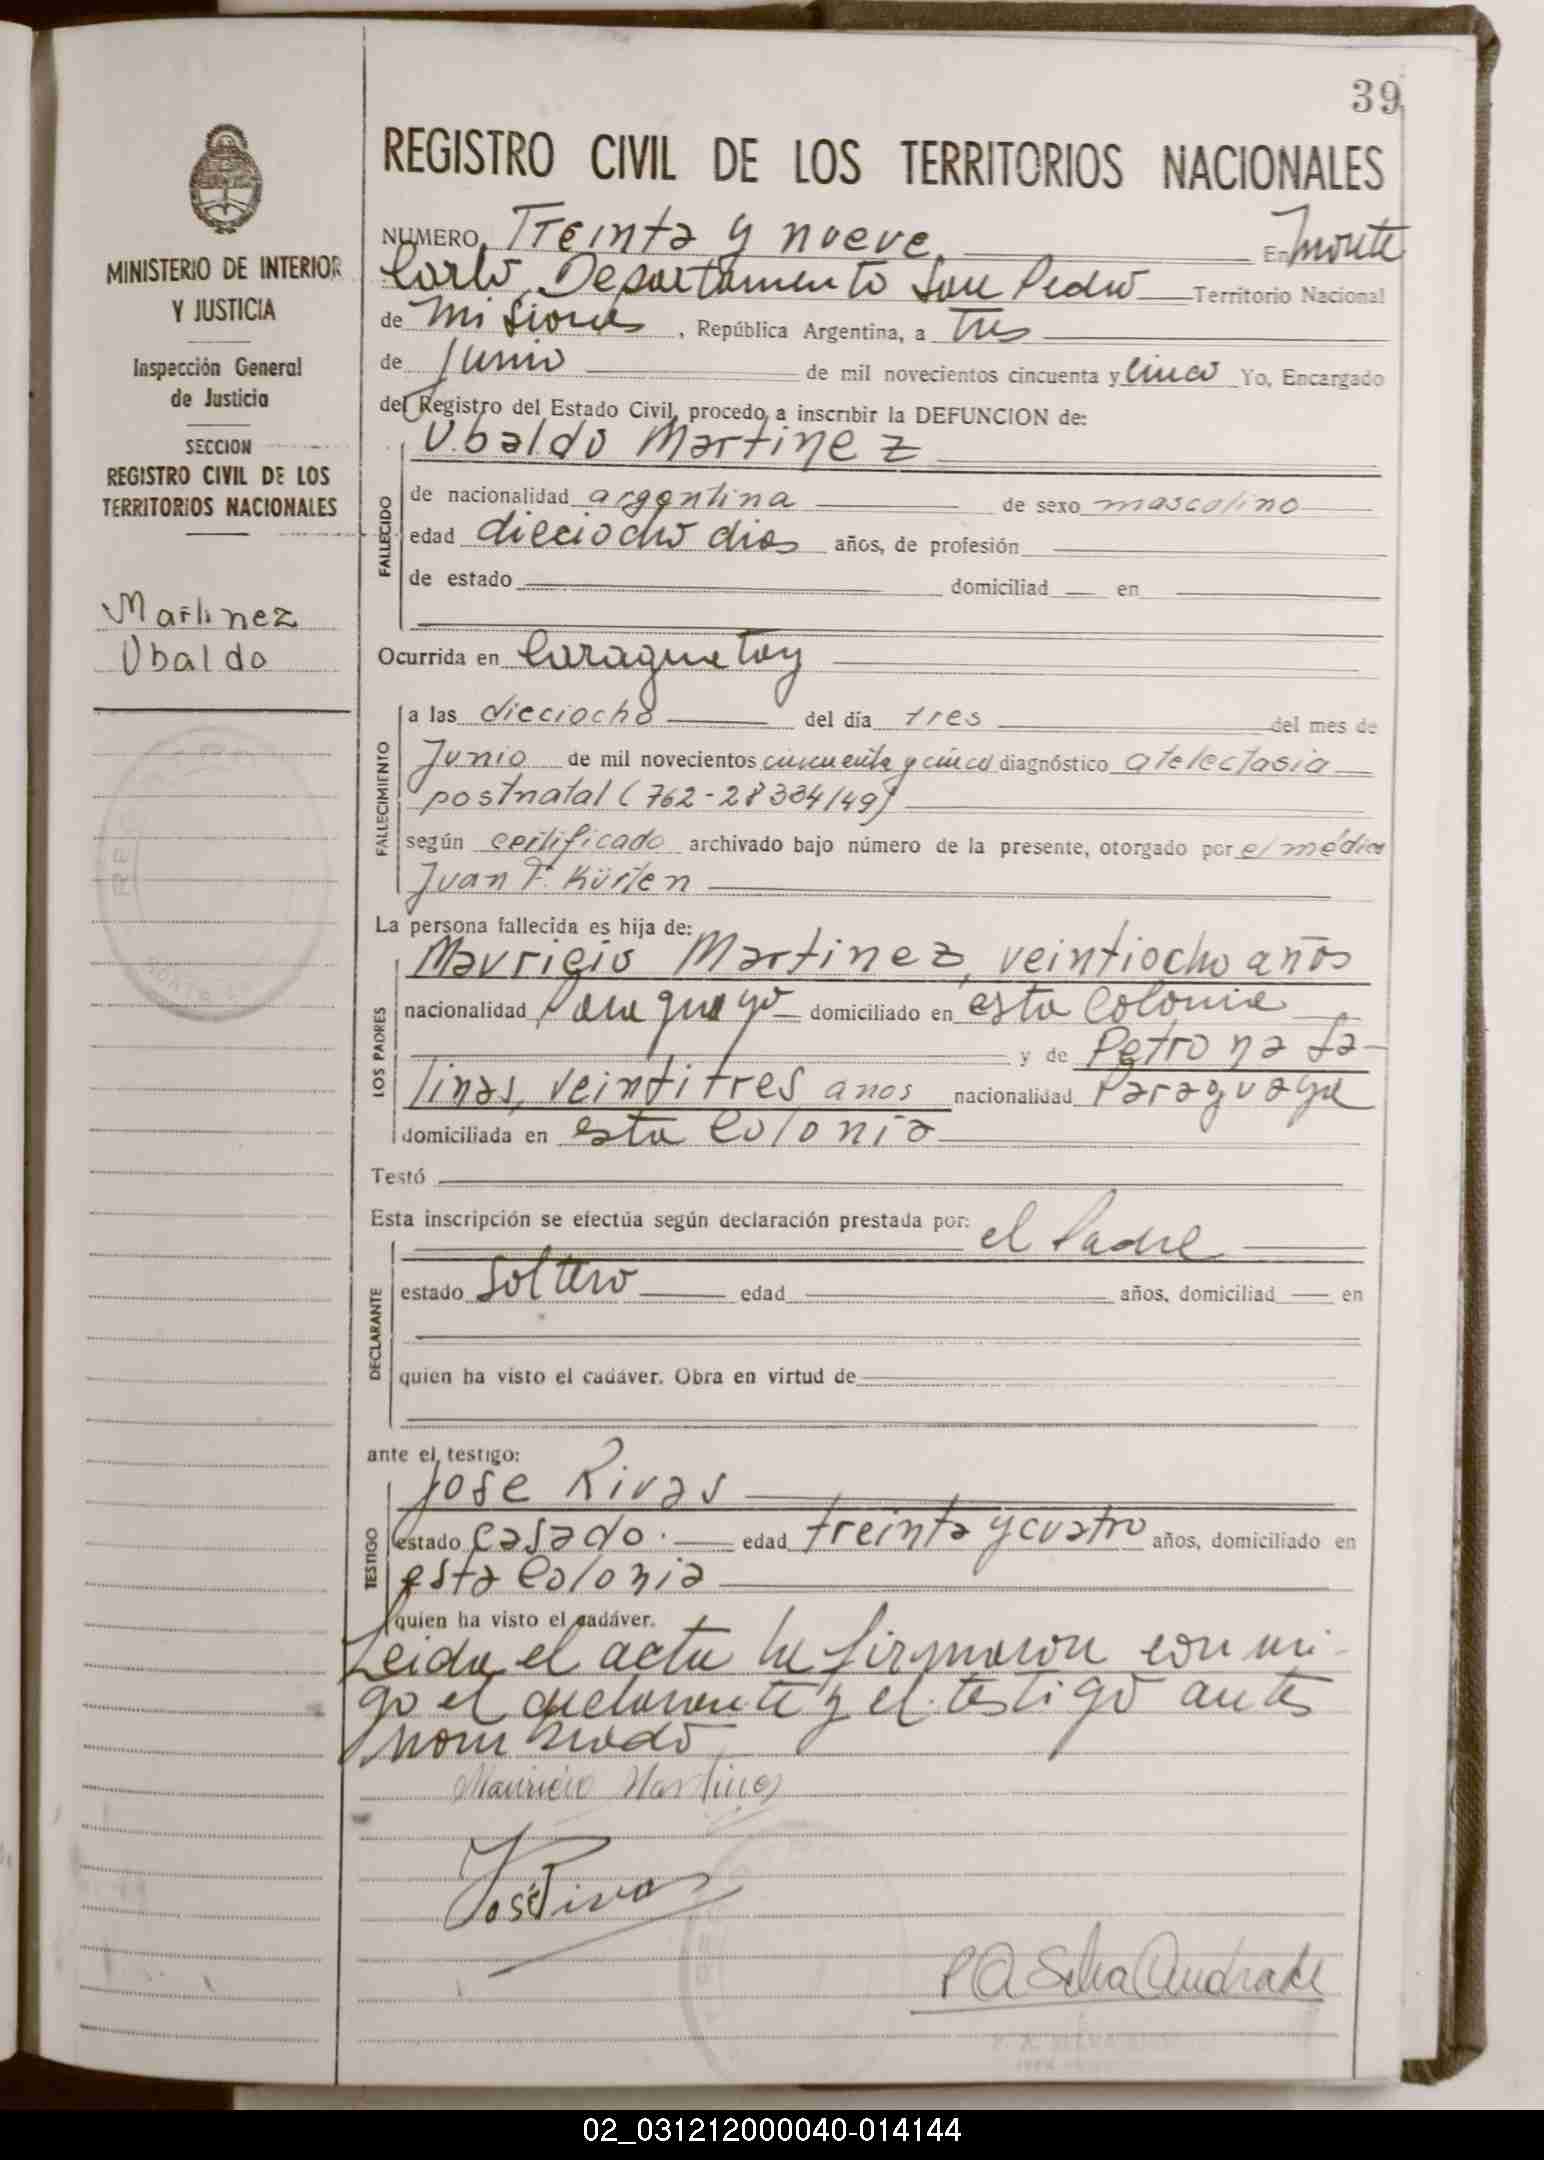 39
REGISTRO CIVIL DE LOS TERRITORIOS NACIONALES
MINISTERIO DE INTERIOR
Y JUSTICIA
Inspección General
de Justicia
SECCION
REGISTRO CIVIL DE LOS
TERRITORIOS NACIONALES
Martinez
Ubaldo
NUMERO Treinta y nueve En Monte
Carlo, Departamento San Pedro Territorio Nacional
de Misiones, República Argentina, a Tres
de Junio de mil novecientos cincuenta y Cinco Yo, Encargado
del Registro del Estado Civil, procedo a inscribir la DEFUNCION de:
Ubaldo Martinez
FALLECIDO
de nacionalidad argentina de sexo masculino
edad dieciocho dias años, de profesión
de estado domiciliad en
Ocurrida en Caraguatay
FALLECIMIENTO
a las dieciocho del día tres del mes de
Junio de mil novecientos cincuenta y cinco diagnóstico atelectasia
postnatal (762-28334/49)
según certificado archivado bajo número de la presente, otorgado por el médico
Juan F. Kürten
La persona fallecida es hija de:
LOS PADRES
Mauricio Martinez, veintiocho años
nacionalidad Paraguayo domiciliado en esta Colonia
y de Petrona Sa-
linas, veintitres años nacionalidad Paraguaya
domiciliada en esta Colonia
Testó
Esta inscripción se efectúa según declaración prestada por: el Padre
DECLARANTE
estado Soltero edad años, domiciliad en
quien ha visto el cadáver. Obra en virtud de
ante el testigo:
TESTIGO
Jose Rivas
estado Casado. edad treinta y cuatro años, domiciliado en
esta Colonia
quien ha visto el cadáver.
Leida el acta la firmaron conmi-
go el declarante y el testigo antes
nombrado
Mauricio Martinez
José Rivas
P A Silva Andrade
02_031212000040-014144